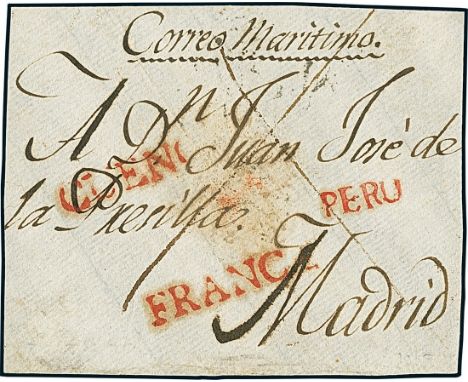 Correo Maritimo.
A Dn. Juan José de
la Presilla.
PERU
FRANCA
Madrid